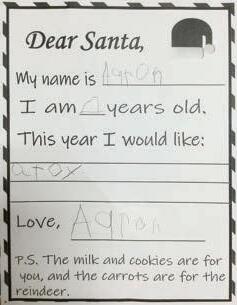 Dear Santa,
My name is Agron
I am years old.
This year I would like:
Love, Agron
P.S. The milk and cookies are for
you, and the carrots are for the
reindeer.